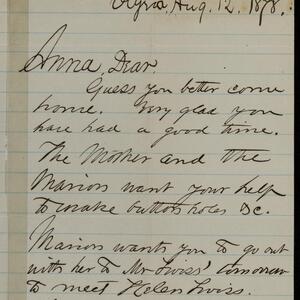 Elyria, Aug. 12, 1878.
Anna, Dear.
Guess you better come
home. Very glad you
have had a good time.
The Mother and the
Marion want your help
to make button holes &c.
Marion wants you to go out
with her to Mr tomorrow
to meet Helen